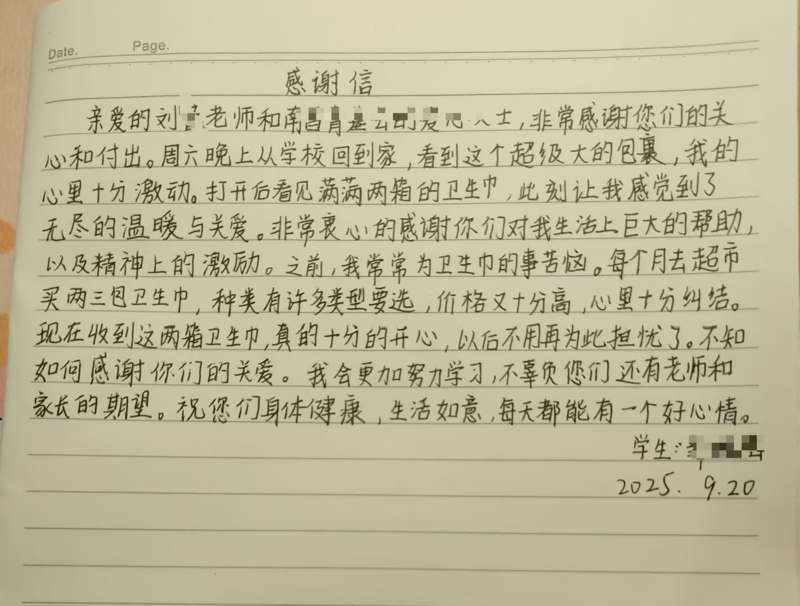 Date.
Page.
感谢信
亲爱的刘老师和南士，非常感谢您们的关
心和付出。周六晚上从学校回到家，看到这个超级大的包裹，我的
心里十分激动。打开后看见满满两箱的卫生巾，此刻让我感觉到了
无尽的温暖与关爱。非常衷心的感谢你们对我生活上巨大的帮助，
以及精神上的激励。之前，我常常为卫生巾的事苦恼。每个月去超市
买两三包卫生巾，种类有许多类型要选，价格又十分高，心里十分纠结。
现在收到这两箱卫生巾，真的十分的开心，以后不用再为此担忧了。不知
如何感谢你们的关爱。我会更加努力学习，不辜负您们还有老师和
家长的期望。祝您们身体健康，生活如意，每天都能有一个好心情。
学生：
2025. 9.20